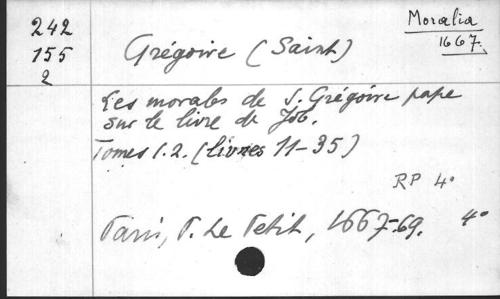 242
155
2
Grégoire (Saint)
Moralia
1667.
Les morales de S. Grégoire pape
sur le livre de Job.
Tomes 1.2. (livres 11-35)
RP 4°
Paris, P. Le Petit, 1667-69. 4°